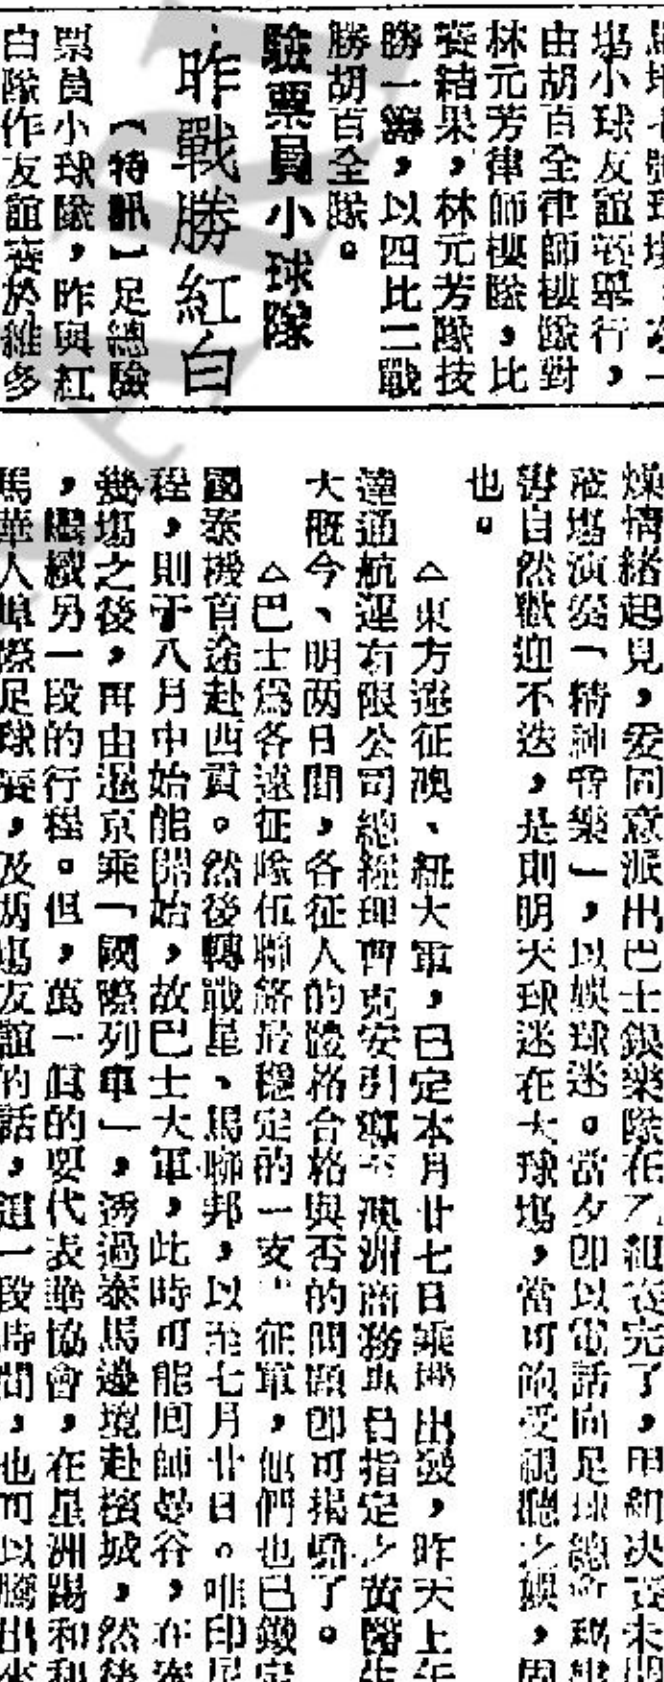 塲小球友誼賽舉行，
由胡百全律師樓隊對
林元芳律師樓隊，比
賽結果，林元芳隊技
勝一籌，以四比二戰
勝胡百全隊。
驗票員小球隊
昨戰勝紅白
【特訊】足總驗
票員小球隊，昨與紅
白隊作友誼賽於維多
情緒起見，爰同意派出巴士銀樂隊在乙組賽完了，甲組決賽未開
塲演奏「精神音樂」，以娛球迷。當夕即以電話向足球總會
自然歡迎不迭，是則明天球迷在大球塲，當可飽受視聽之娛，因
也。
△東方遠征澳、紐大軍，已定本月廿七日乘機出發，昨天上午
達通航運有限公司總經理曹克安引導至澳洲商務專員指定之黃醫生
大概今、明两日間，各征人的體格合格與否的問題即可揭曉了。
△巴士爲各遠征隊伍聯絡最穩定的一支征軍，他們也已鐵定
國泰機首途赴西貢。然後轉戰星、馬聯邦，以至七月廿日。唯印尼
程，則于八月中始能開始，故巴士大軍，此時可能回師曼谷，在
幾塲之後，再由暹京乘「國際列車」，透過泰馬邊境赴檳城，然後
，繼續另一段的行程。但，萬一眞的要代表華協會，在星洲踢和
馬華人埠際足球賽，及兩塲友誼的話，這一段時間，也可以騰出來